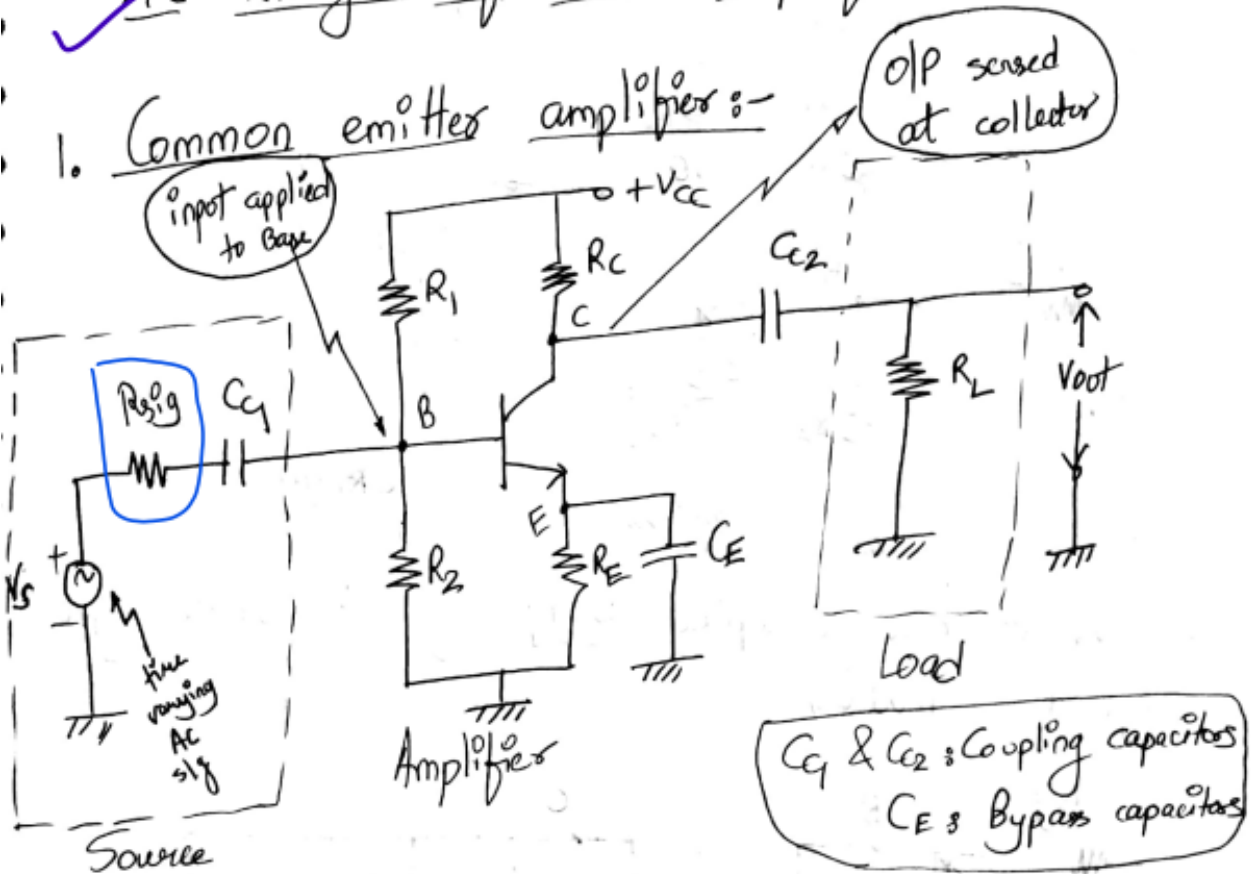 1. Common emitter amplifier :-
O/P sensed
at collector
input applied
to Base
+VCC
R1
RC
CC2
C
Rsig
CC1
B
RL
Vout
E
R2
RE
CE
Vs
+
-
time
varying
AC
sig
Load
Amplifier
Source
CC1 & CC2 : Coupling capacitors
CE : Bypass capacitors